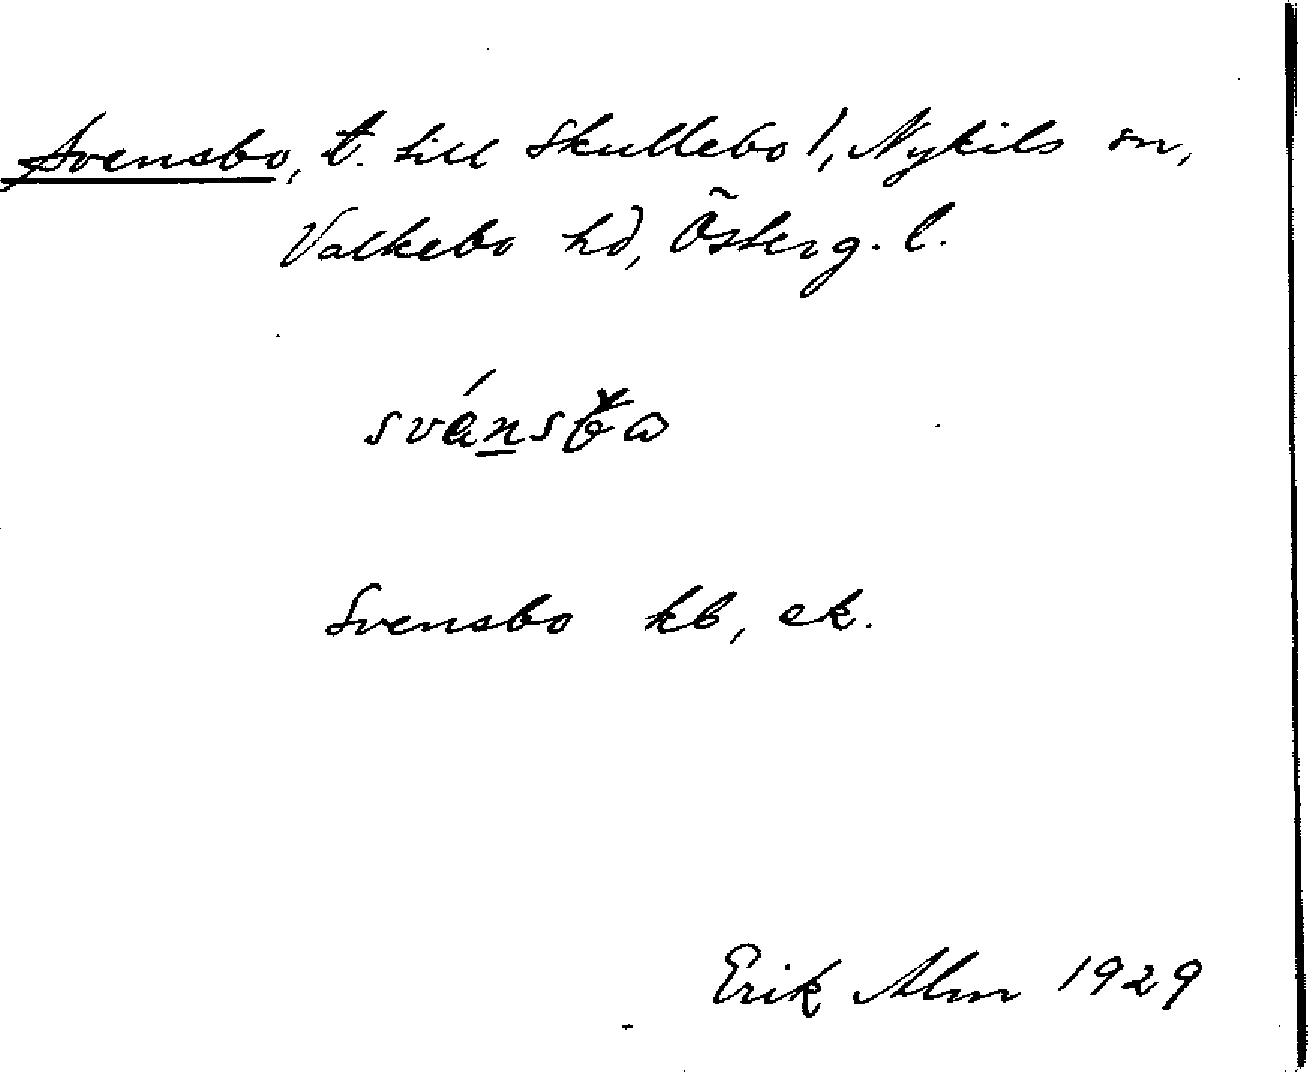 Svensbo, t. till Skullebo 1, Nykils sn,
Valkebo hd, Österg. l.
Svensbo kb, ek.
Erik Alm 1929